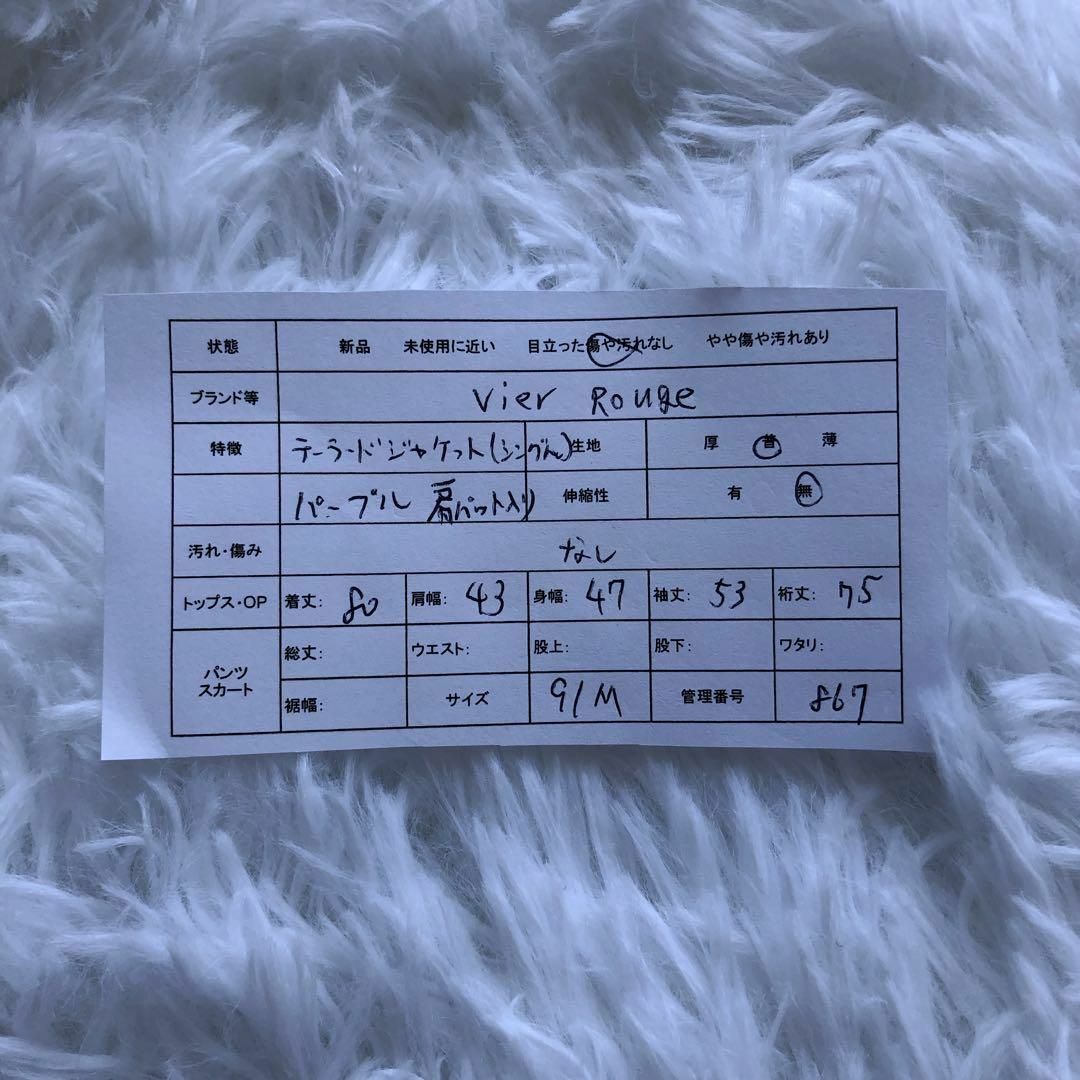 状態 新品 未使用に近い 目立った傷や汚れなし やや傷や汚れあり
ブランド等 Vier Rouge
特徴 テーラードジャケット(シングル) 生地 厚 普 薄
パープル 肩パット入り 伸縮性 有 無
汚れ・傷み なし
トップス・OP 着丈: 80 肩幅: 43 身幅: 47 袖丈: 53 裄丈: 75
パンツ スカート 総丈: ウエスト: 股上: 股下: ワタリ:
裾幅: サイズ 91M 管理番号 867